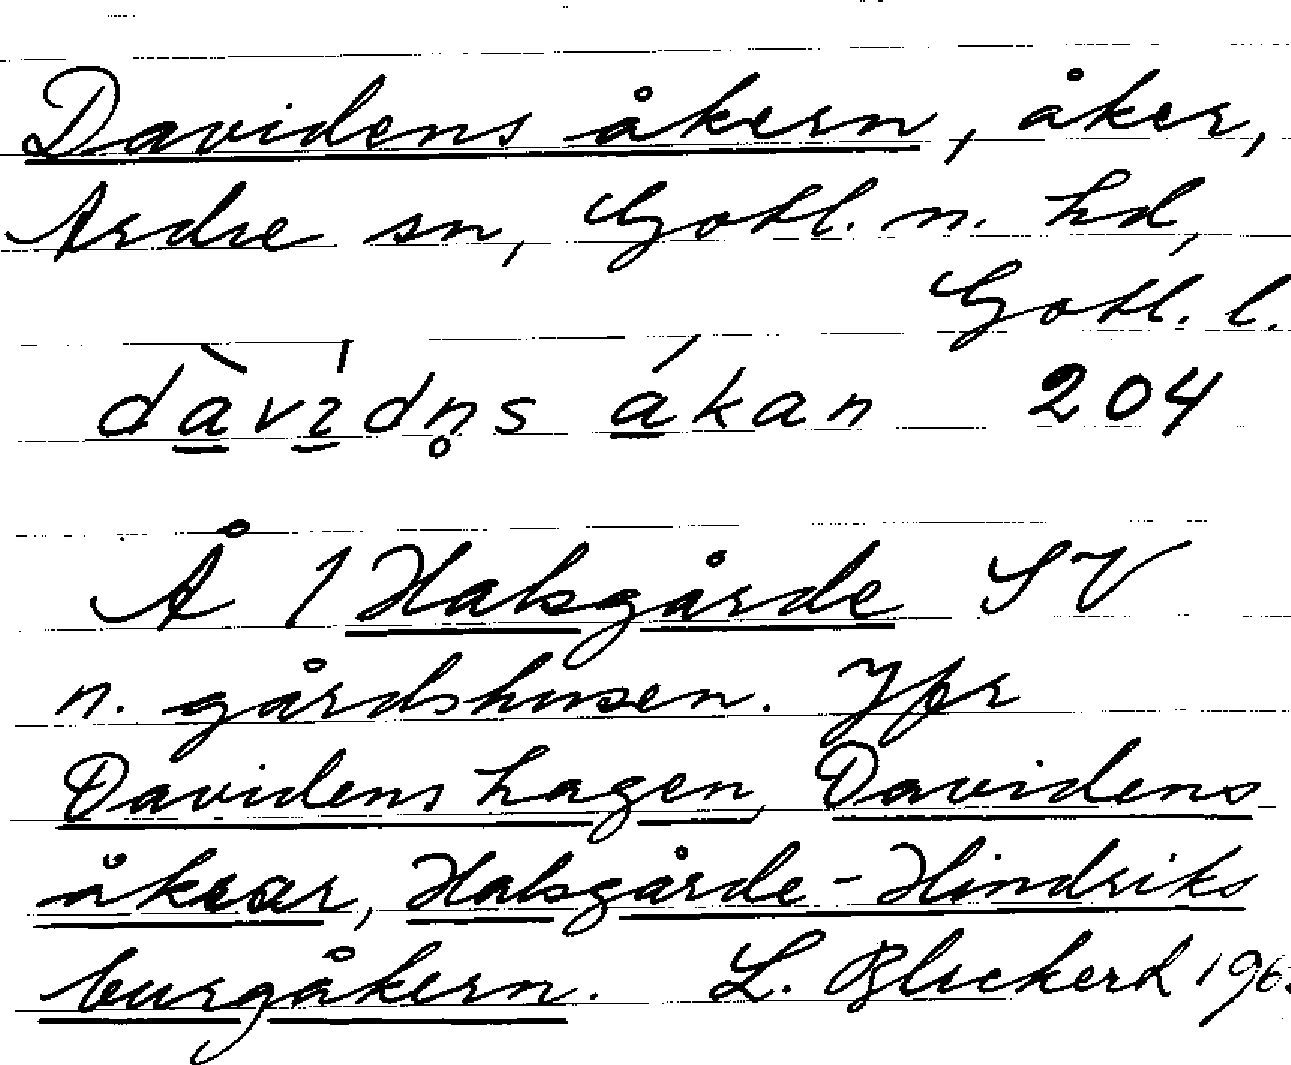 Davidens åkern, åker,
Ardre sn, Gotl. n. hd,
Gotl. l.
dàvídn̥s ákan 204
Å 1 Halsgårde SV
n. gårdshusen. Jfr
Davidens hagen, Davidens
åkrar, Halsgårde-Hindriks
burgåkern. L. Bleckert 196